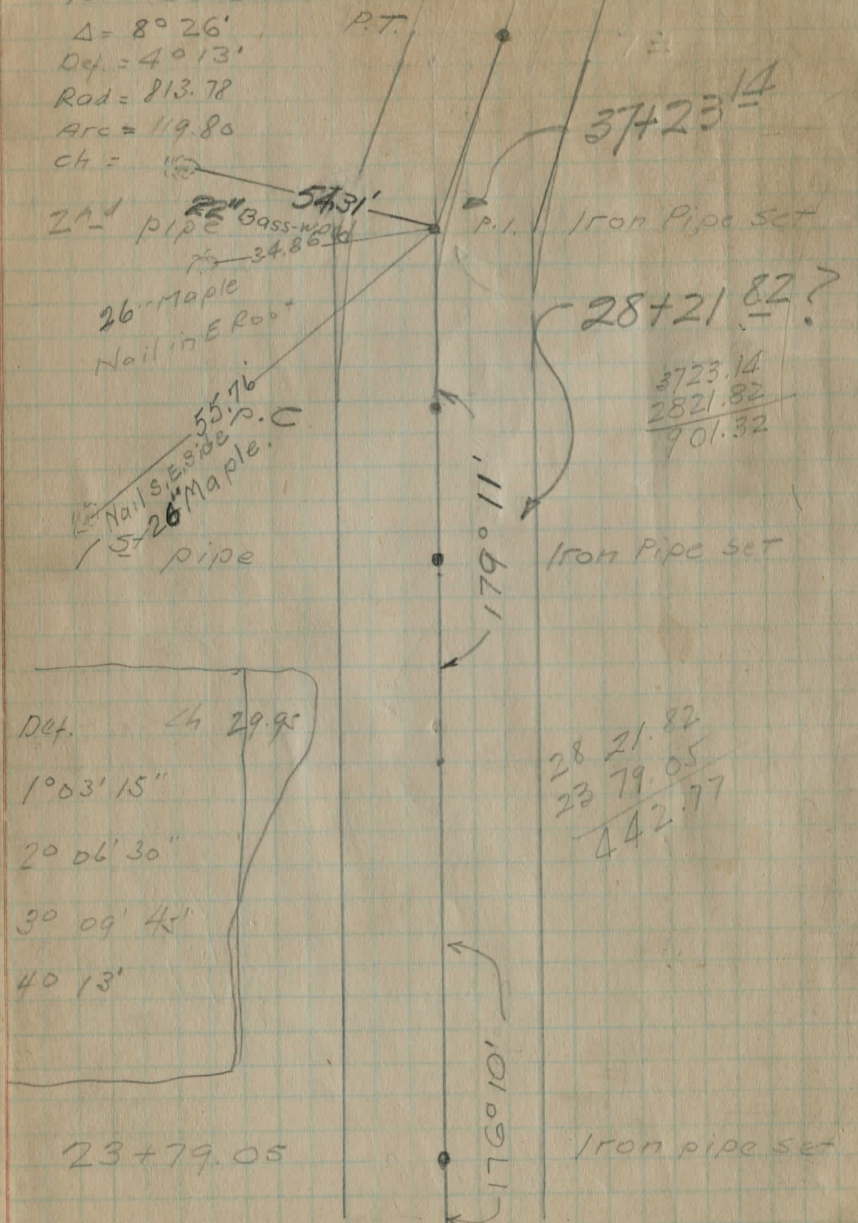 Δ = 8° 26'
Def. = 4° 13'
Rad = 813.78
Arc = 119.80
ch =
P.T.
37+23 14
54.31'
2nd pipe
22" Bass-wood
34.86
P.I.
Iron Pipe set
26" Maple
Nail in E Root
28+21 .82 ?
3723.14
2821.82
901.32
55.76
P.C
Nail S.E. Side
26" Maple.
1st pipe
179° 11'
Iron Pipe set
Def. Ch 29.95
1° 03' 15"
2° 06' 30"
3° 09' 45"
4° 13'
28 21.82
23 79.05
442.77
179° 10'
23+79.05
Iron pipe set